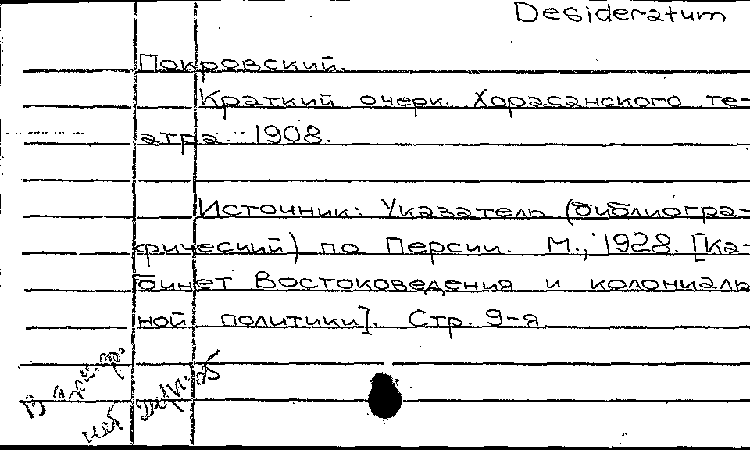 Desideratum
Покровский.
Краткий очерк Хорасанского те-
атра. 1908.
Источник: Указатель (библиогра-
фический) по Персии. М., 1928. [Ка-
бинет Востоковедения и колониаль
ной политики]. Стр. 9-я
В
нет